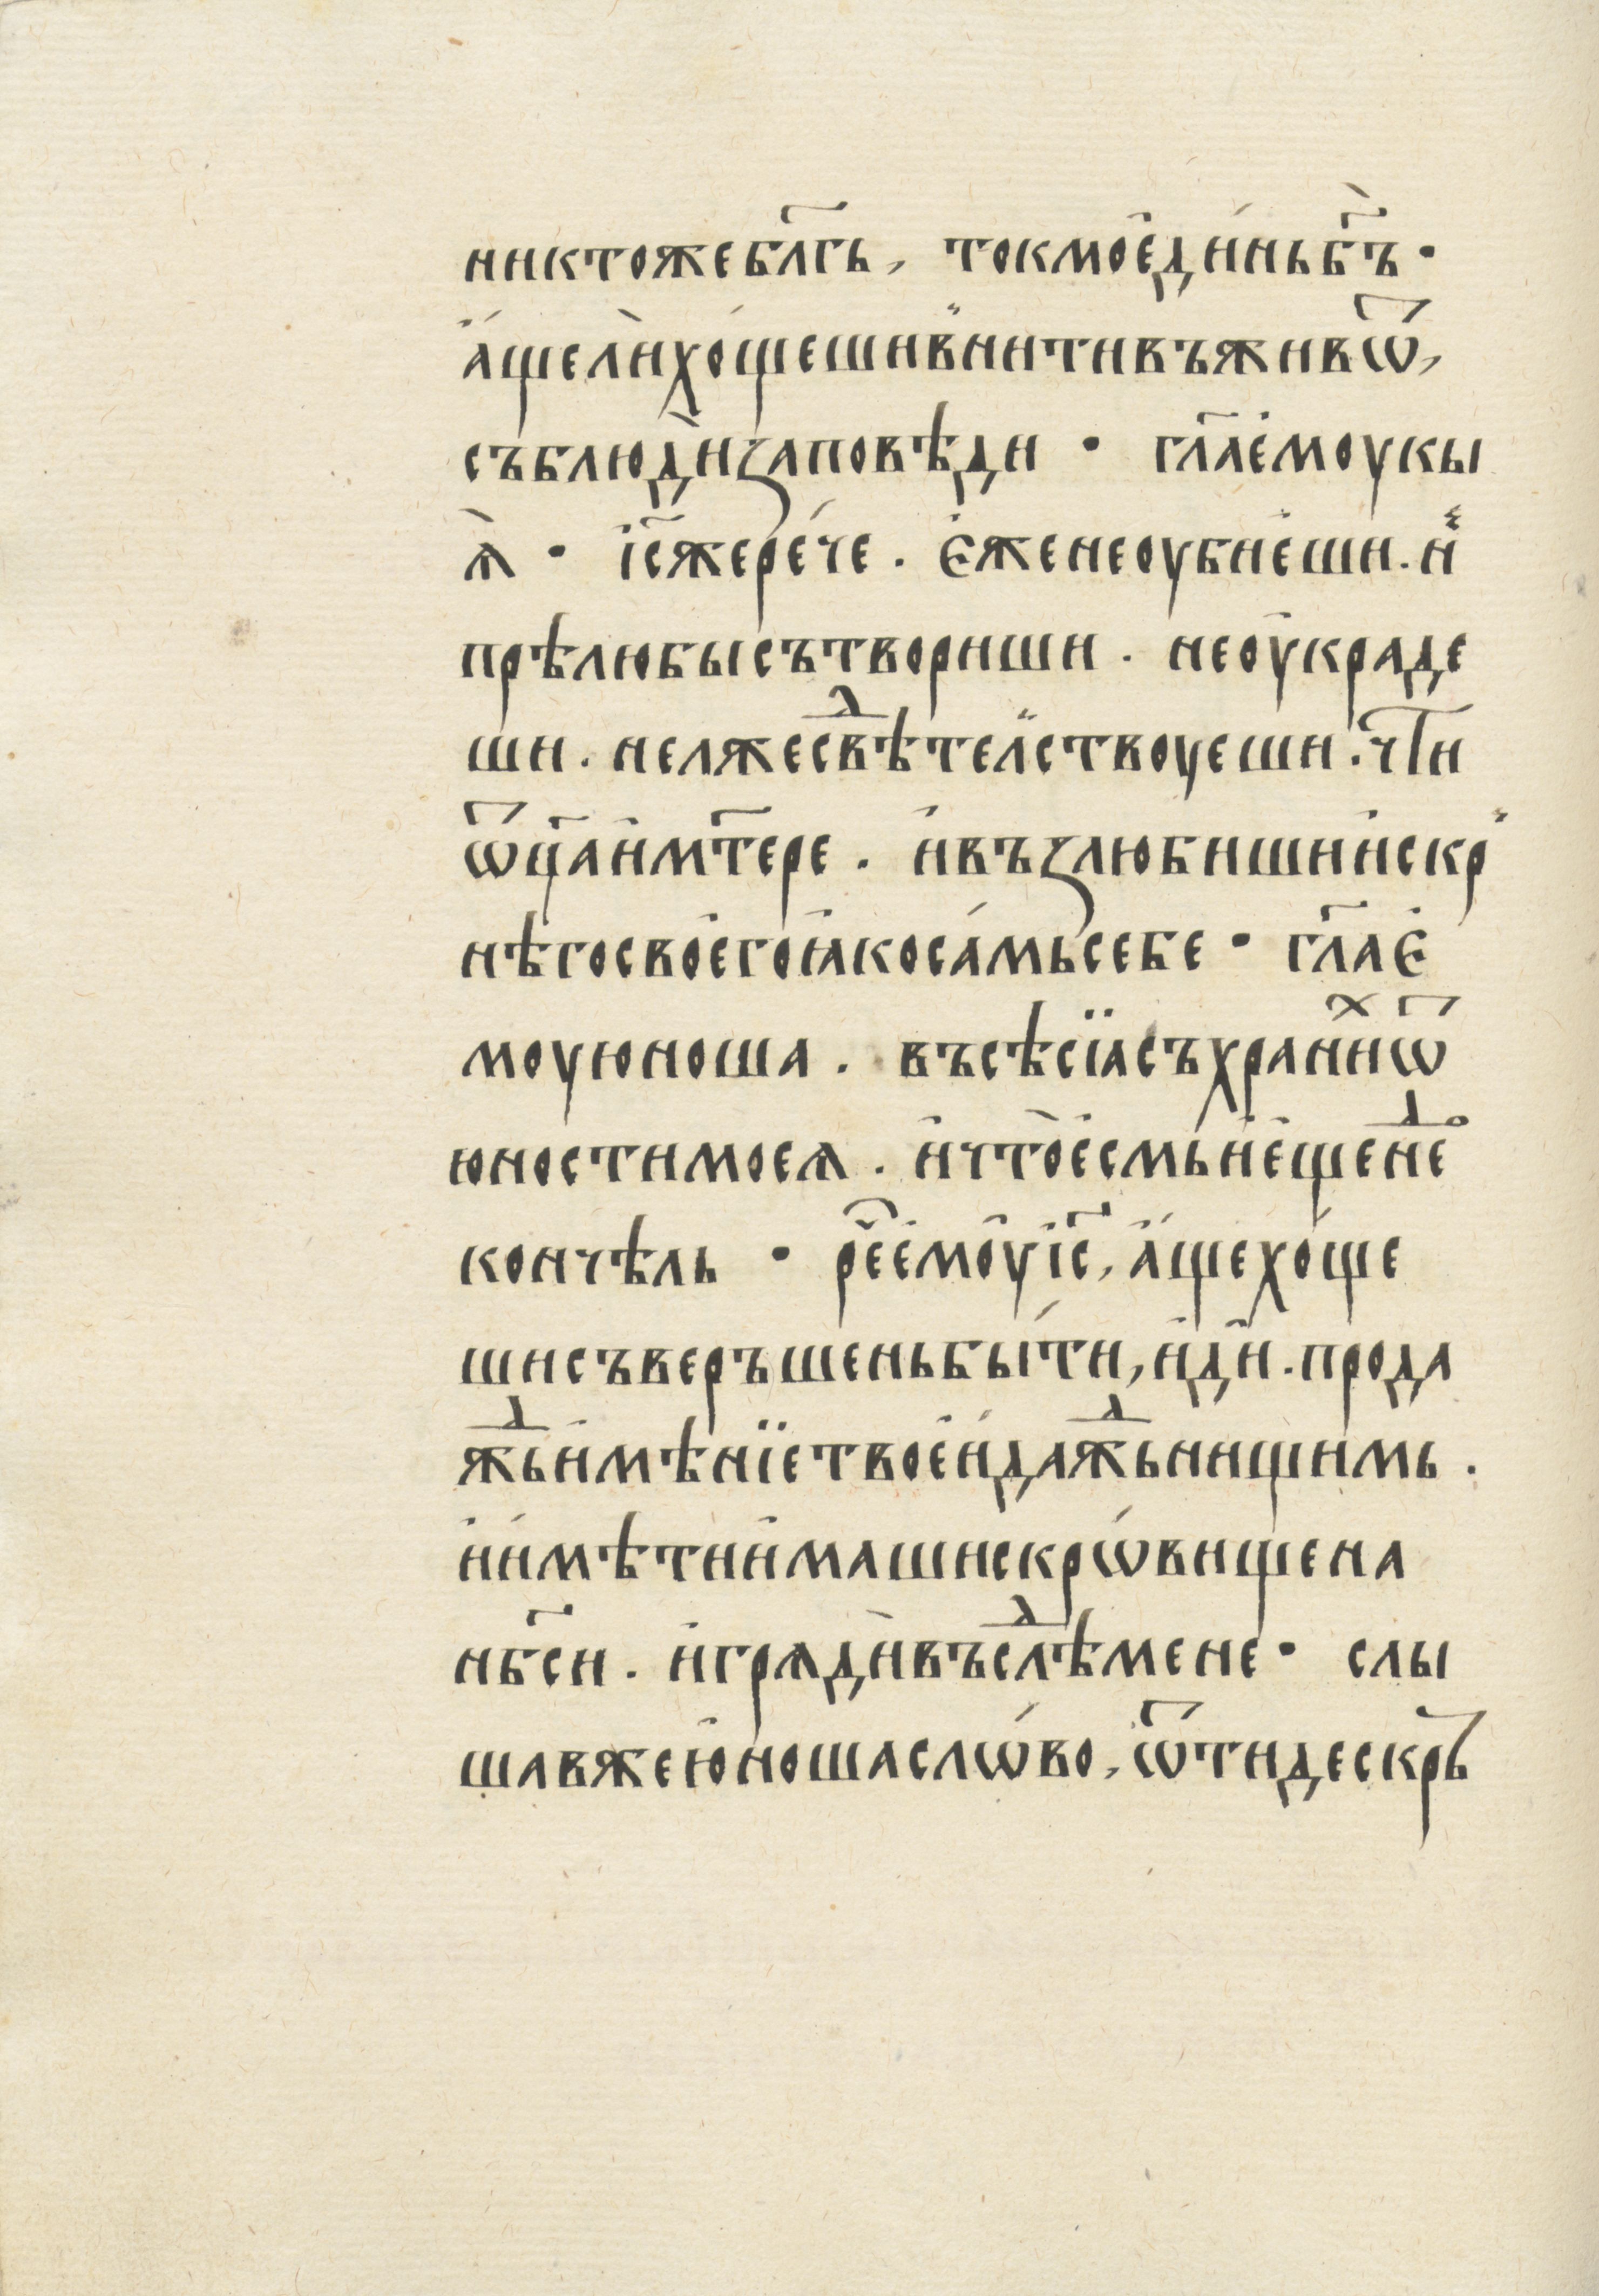 никтожебл҃гь, токмоѐди́ньб҃ъ ·
а҆́щелѝхо́щешив̾нитивъживѡ҃,
съблюдѝзаповѣди · гл҃ае҆моукы
ѧ̀ · і҆с҃жере́че . є҆женеоубїе҆ши. н҆
прѣлюбысътвориши . нео҆украде
ши . нелжесвⷣѣтел̾ствоуеши . чт҃и
ѿц҃аи҆мт҃ере . и҆възлюбишии҆скр̾
нѣгосвое҆гоꙗ҆коса́мьсебе · гл҃ає҆
моуюноша . въсѣсїасъхраниⷯѿ
юностимоеѧ . и҆что̀е҆смьне҆щенеⷣ
кончѣль · ре҃е҆мо҆уі҆с҃, а҆́щехо́ще
шисъверъшеньбы́ти, и҆дѝ . прода
жⷣьи҆мѣнїетвое҆и҆дажⷣьнищимь .
и҆и҆́мѣтии҆машискрѡ́вищена
нб҃си . и҆грѧдѝвъслⷣѣмене · слы
шавжею҆ношаслѡ́во, ѿтидескрь҃